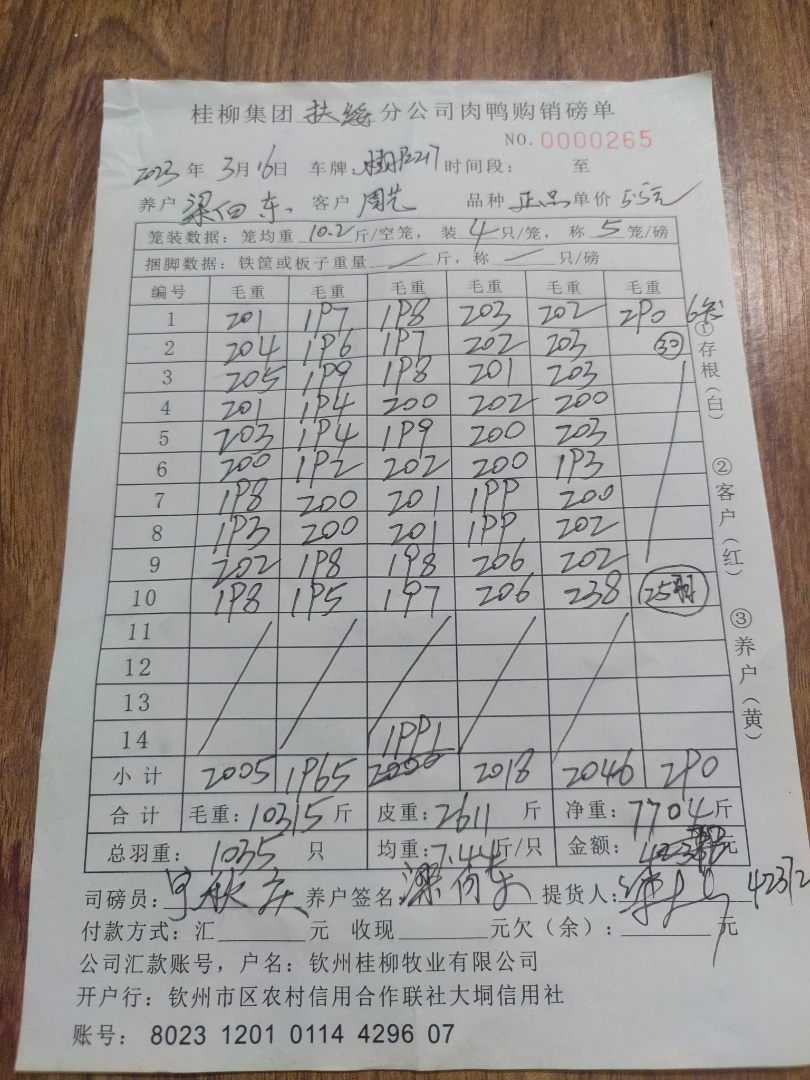 桂柳集团 扶绥 分公司肉鸭购销磅单
NO. 0000265
2023 年 3月16日 车牌: 时间段: 至
养户 梁向东 客户 周芑 品种 正品 单价 5.5元
笼装数据: 笼均重 10.2 斤/空笼, 装 4 只/笼, 称 5 笼/磅
捆脚数据: 铁筐或板子重量 — 斤, 称 — 只/磅
编号 毛重 毛重 毛重 毛重 毛重 毛重
1 201 197 198 203 202 290 6
2 204 196 197 202 203 30
3 205 199 198 201 203
4 201 194 200 202 200
5 203 194 199 200 203
6 200 192 202 200 193
7 198 200 201 199 200
8 193 200 201 199 202
9 202 198 198 206 202
10 198 195 197 206 238 25羽
11
12
13
14 1991
小计 2005 1965 2018 2046 290
合计 毛重: 10315 斤 皮重: 2611 斤 净重: 7704 斤
总羽重: 1035 只 均重: 7.44 斤/只 金额: 元
司磅员: 养户签名 梁向东 提货人: 42372
付款方式: 汇 元 收现 元欠(余): 元
公司汇款账号, 户名: 钦州桂柳牧业有限公司
开户行: 钦州市区农村信用合作联社大垌信用社
账号: 8023 1201 0114 4296 07
①存根(白)
②客户(红)
③养户(黄)